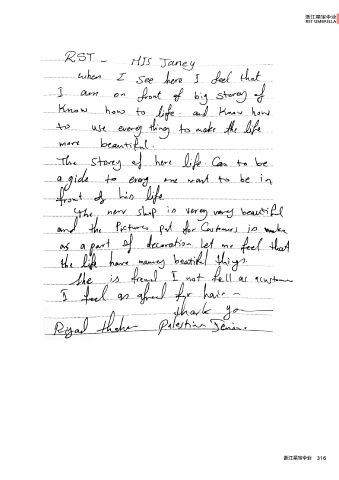 浙江星宝伞业
RST UMBRELLA
RST - MIS Janey
when I see here I feel that
I am on front of big storey of
Know how to life and Know how
to use every thing to make the life
more beautiful.
The storey of here life Can to be
a gide to every one want to be in
front of his life.
The new shop is verey very beautiful
and the Pictures put for Customers is make
as a part of decoration let me feel that
the life have maney beatiful things.
She is freind I not fell as acustomer
I feel as afreind for hair -
thank you
Riyad thaher Palestine Jenin.
浙江星宝伞业 316